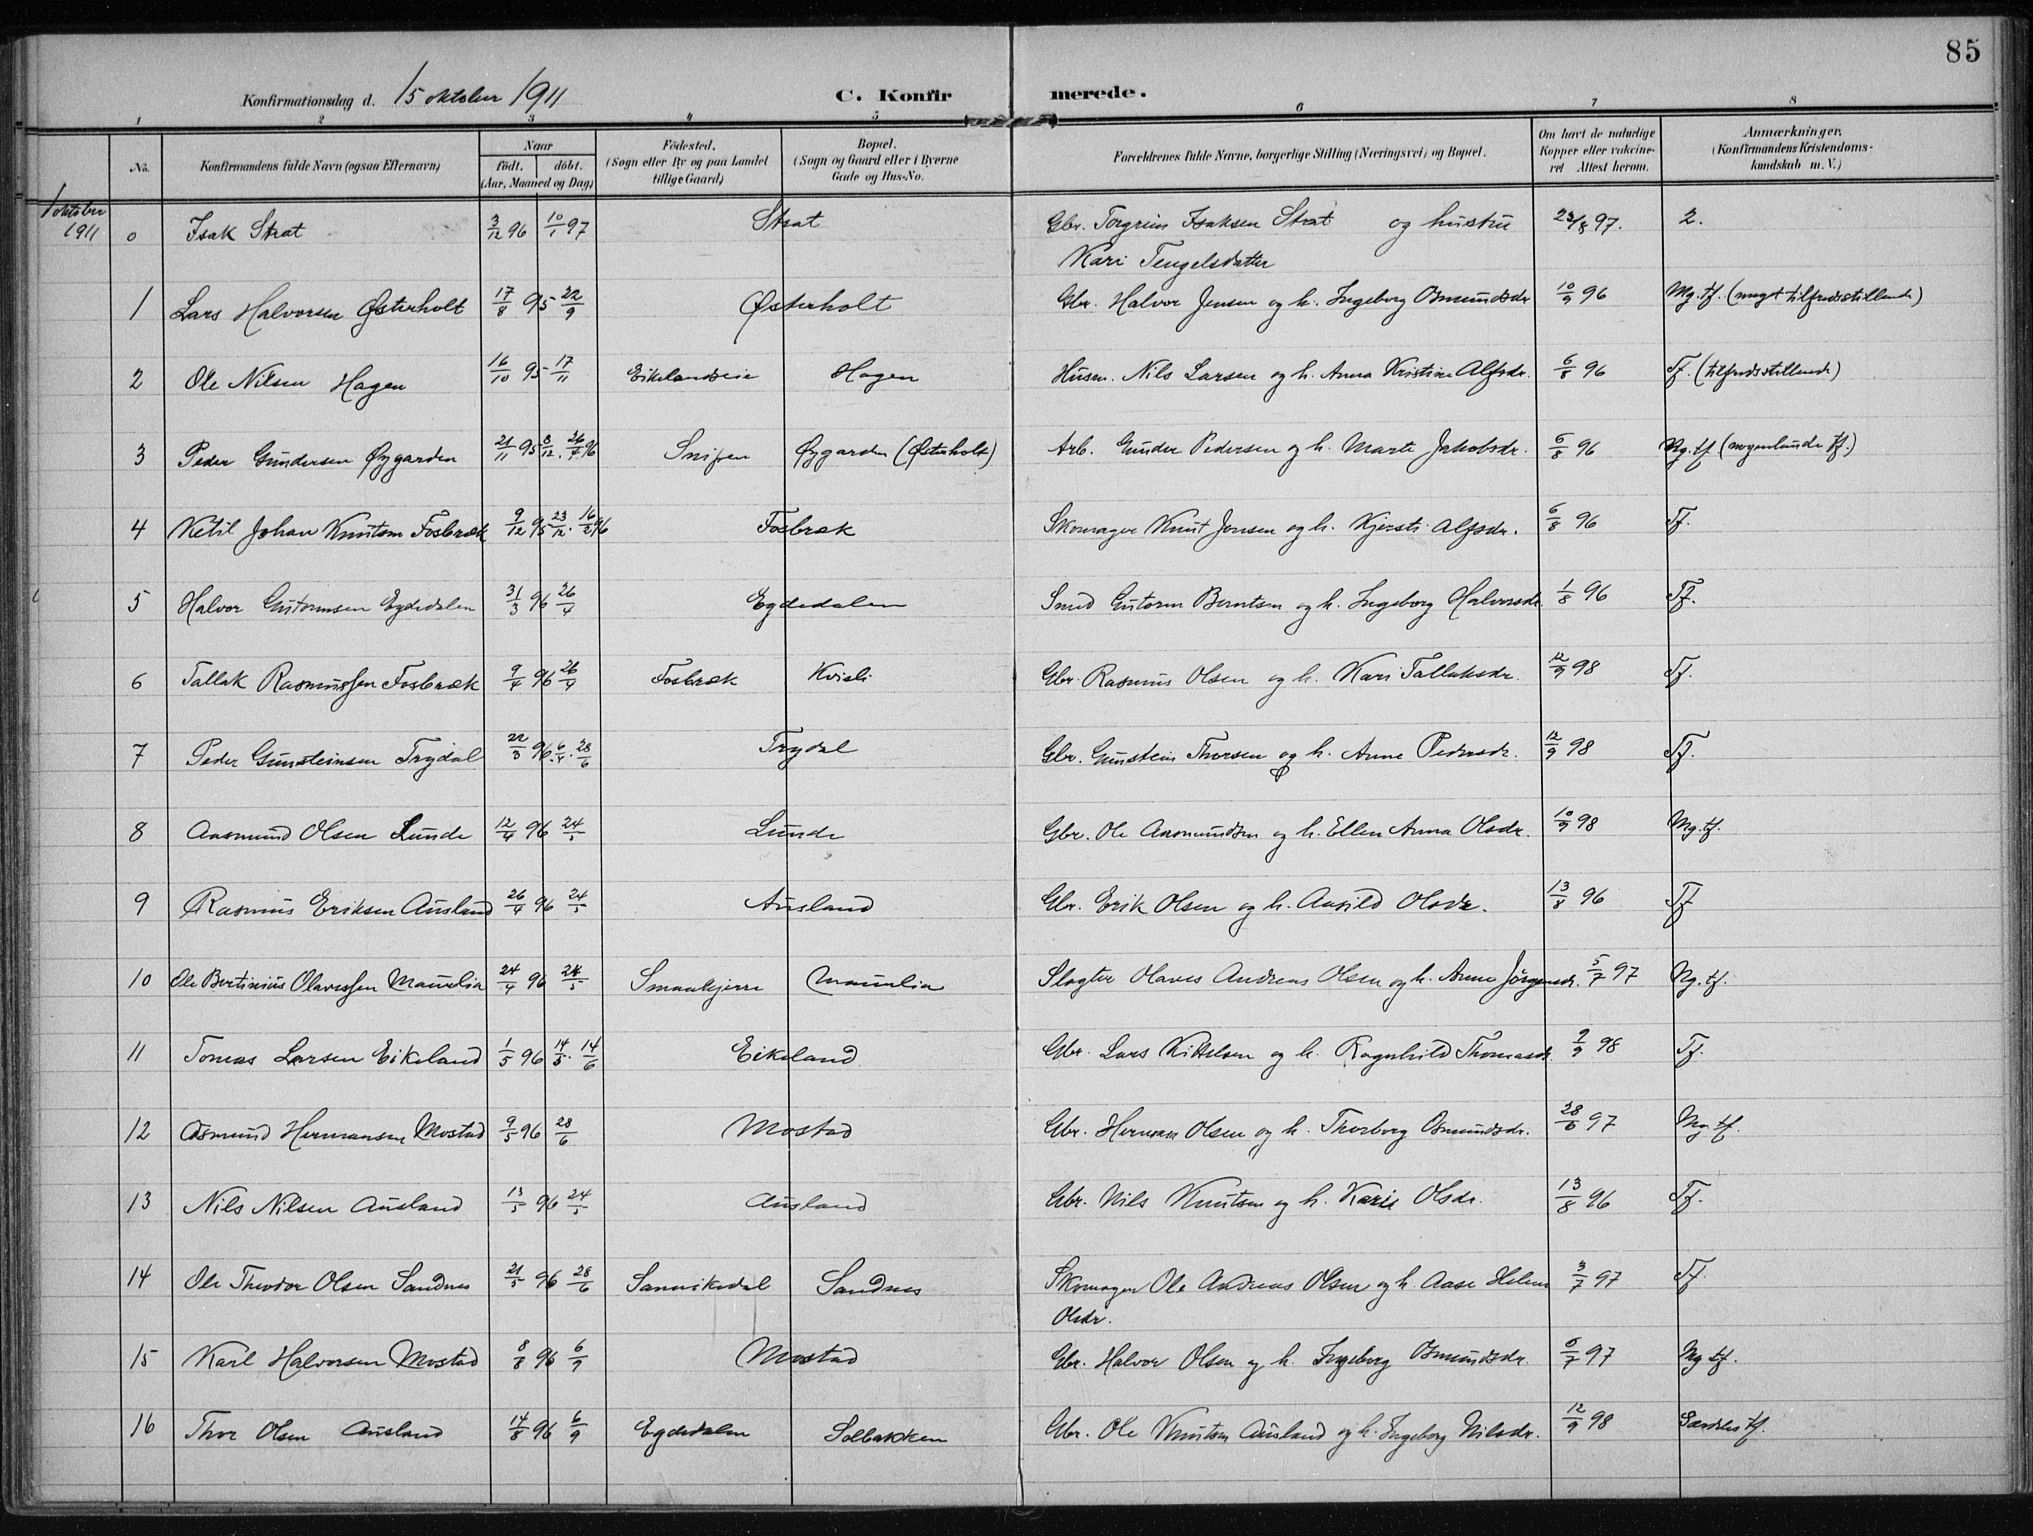 85
Konfirmationsdag d. 15 oktober 1911 C. Konfirmerede.
1 2 3 4 5 6 7 8
No. Konfirmandens fulde Navn (ogsaa Efternavn) Naar født. døbt. (Aar, Maaned og Dag) Fødested. (Sogn eller By og paa Landet tillige Gaard) Bopæl. (Sogn og Gaard eller i Byerne Gade og Hus-No. Forældrenes fulde Navne, borgerlige Stilling (Næringsvei) og Bopæl. Om havt de naturlige Kopper eller vakcineret Attest herom. Anmærkninger. (Konfirmandens Kristendomskundskab m. V.)
1 oktober 1911 0 Isak Strat 3/12 96 10/1 97 Strat Gbr. Torgrim Isaksen Strat og hustru 23/8 97. 2.
Kari Tengelsdatter
1 Lars Halvorsen Østerholt 17/8 95 22/9 Østerholt Gbr. Halvor Jensen og h. Ingeborg Osmundsdr 10/9 96 Mg. tf. (meget tilfredsstillende)
2 Ole Nilsen Hagen 16/10 95 17/11 Eikelandseie Hagen Husm. Nils Larsen og h. Anna Kristine Alfsdr. 6/8 96 Tf. (tilfredsstillende)
3 Peder Gundersen Øygarden 21/11 95 8/12. 26/7 96 Snipen Øygarden (Østerholt) Arb. Gunder Pedersen og h. Marte Jakobsdr. 6/8 96 Ng. tf (nogenlunde tf.)
4 Ketil Johan Knutsen Fosbræk 9/12 95 23/12. 16/2 96 Fosbræk Skomager Knut Jensen og h. Kjersti Alfsdr. 6/8 96 Tf.
5 Halvor Gutormsen Egdedalen 31/3 96 26/4 Egdedalen Smed Gutorm Berntsen og h. Ingeborg Halvorsdr. 1/8 96 Tf.
6 Tallak Rasmussen Fosbræk 9/4 96 26/4 Fosbræk Kvisli Gbr. Rasmus Olsen og h. Kari Tallaksdr. 12/9 98 Tf.
7 Peder Gunsteinsen Trydal 22/3 96. 6/4. 28/6 Trydal Gbr. Gunstein Thorsen og h. Anne Pedersdr. 12/9 98 Tf.
8 Aasmund Olsen Lunde 12/4 96 24/5 Lunde Gbr. Ole Aasmundsen og h. Ellen Anna Olsdr. 10/9 98 Mg. tf.
9 Rasmus Eriksen Ausland 26/4 96 24/5 Ausland Gbr. Erik Olsen og h. Aasild Olsdr. 13/8 96 Tf
10 Ole Bertinius Olavessen Maurlia 24/4 96 24/5 Smaakjerr Maurlia Slagter Olaves Andreas Olsen og h. Anne Jörgensdr. 5/7 97 Ng. tf.
11 Tomas Larsen Eikeland 1/5 96 14/5. 14/6 Eikeland Gbr. Lars Kittelsen og h. Ragnhild Thomasdr. 2/9 98 Tf.
12 Osmund Hermansen Mostad 9/5 96 28/6 Mostad Gbr. Herman Olsen og h. Thorborg Osmundsdr. 28/6 97 Mg. tf.
13 Nils Nilsen Ausland 13/5 96 24/5 Ausland Gbr. Nils Knutsen og h. Karie Olsdr. 13/8 96 Tf.
14 Ole Theodor Olsen Sandnes 21/5 96 28/6 Sannikedal Sandnes Skomager Ole Andreas Olsen og h. Aase Helene 3/7 97 Tf
Olsdr.
15 Karl Halvorsen Mostad 8/8 96 6/9 Mostad Gbr. Halvor Olsen og h. Ingeborg Osmundsdr. 6/7 97 Ng tf.
16 Thor Olsen Ausland 14/8 96 6/9 Egdedalen Solbakken Gbr. Ole Knutsen Ausland og h. Ingeborg Nilsdr. 12/9 98 Særdeles tf.